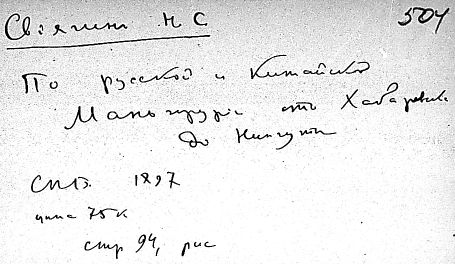 Свіягинъ Н С 504
По русской и Китайской
Маньчжуріи отъ Хабаровска
до Нингуты
СПБ. 1897
цена 75 к
стр 94, рис